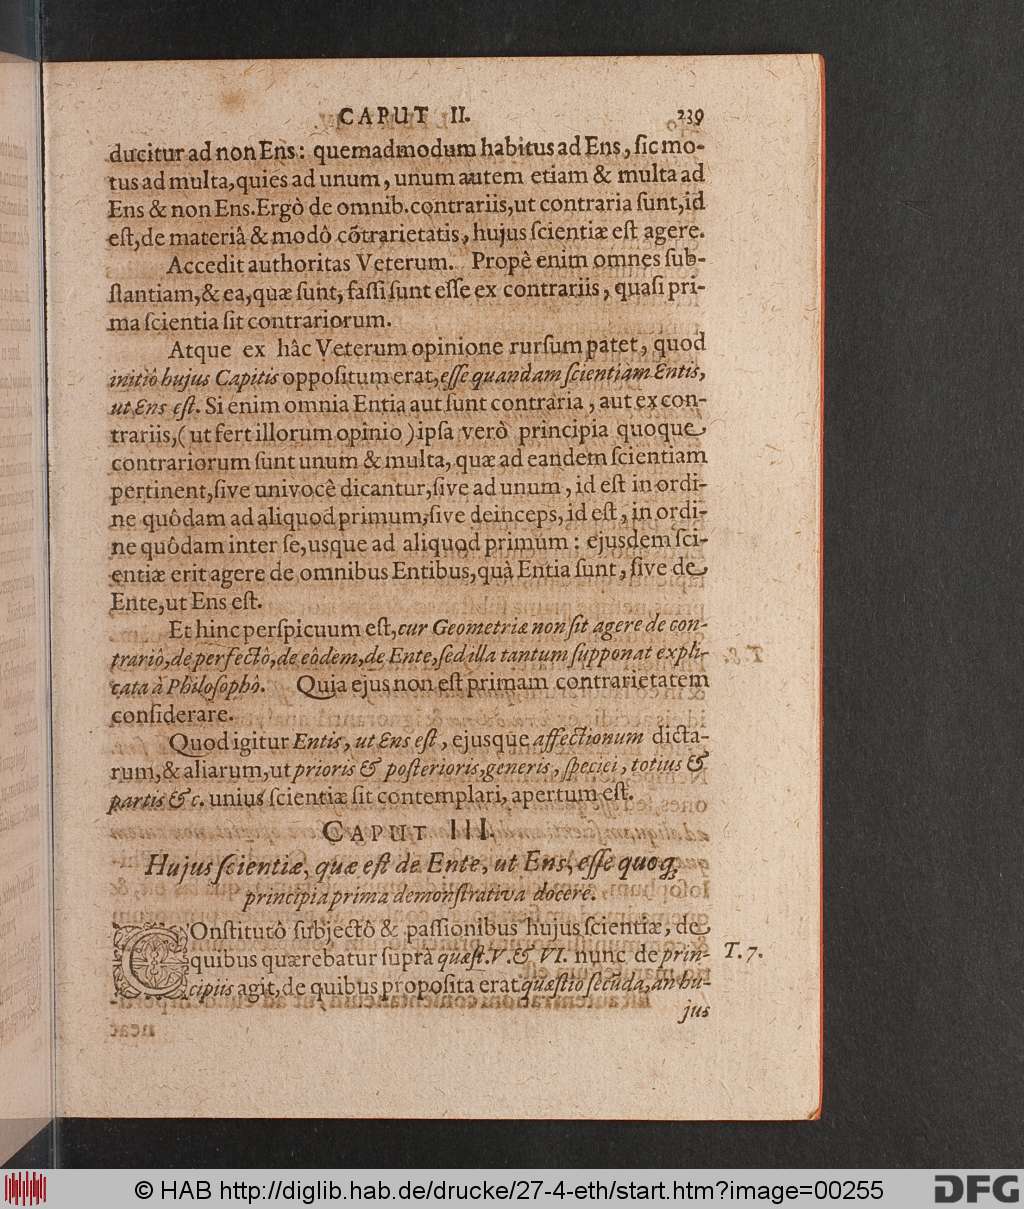 CAPUT II. 239
ducitur ad non Ens: quemadmodum habitus ad Ens, ſic mo-
tus ad multa, quies ad unum, unum autem etiam & multa ad
Ens & non Ens. Ergò de omnib. contrariis, ut contraria ſunt, id
eſt, de materiâ & modô cõtrarietatis, hujus ſcientiæ eſt agere.
Accedit authoritas Veterum. Propê enim omnes ſub-
ſtantiam, & ea, quæ ſunt, faſſi ſunt eſſe ex contrariis, quaſi pri-
ma ſcientia ſit contrariorum.
Atque ex hâc Veterum opinione rurſum patet, quod
initiô hujus Capitis oppoſitum erat, eſſe quandam ſcientiam Entis,
ut Ens eſt. Si enim omnia Entia aut ſunt contraria, aut ex con-
trariis, (ut fert illorum opinio) ipſa verò principia quoque
contrariorum ſunt unum & multa, quæ ad eandem ſcientiam
pertinent, ſive univocê dicantur, ſive ad unum, id eſt in ordi-
ne quôdam ad aliquod primum, ſive deinceps, id eſt, in ordi-
ne quôdam inter ſe, usque ad aliquod primum: ejusdem ſci-
entiæ erit agere de omnibus Entibus, quà Entia ſunt, ſive de
Ente, ut Ens eſt.
Et hinc perſpicuum eſt, cur Geometriæ non ſit agere de con-
trariô, de perfectô, de eôdem, de Ente, ſed illa tantum ſupponat expli-
cata à Philoſophô. Quia ejus non eſt primam contrarietatem
conſiderare.
Quod igitur Entis, ut Ens eſt, ejusque affectionum dicta-
rum, & aliarum, ut prioris & poſterioris, generis, ſpeciei, totius &
partis & c. unius ſcientiæ ſit contemplari, apertum eſt.
CAPUT III.
Hujus ſcientiæ, quæ eſt de Ente, ut Ens, eſſe quoq;
principia prima demonſtrativa docere.
COnſtitutô ſubjectô & paſſionibus hujus ſcientiæ, de
quibus quærebatur ſuprà quæſt. V. & VI. nunc de prin- T. 7.
cipiis agit, de quibus propoſita erat quæſtio ſecũda, an hu-
jus
© HAB http://diglib.hab.de/drucke/27-4-eth/start.htm?image=00255 DFG